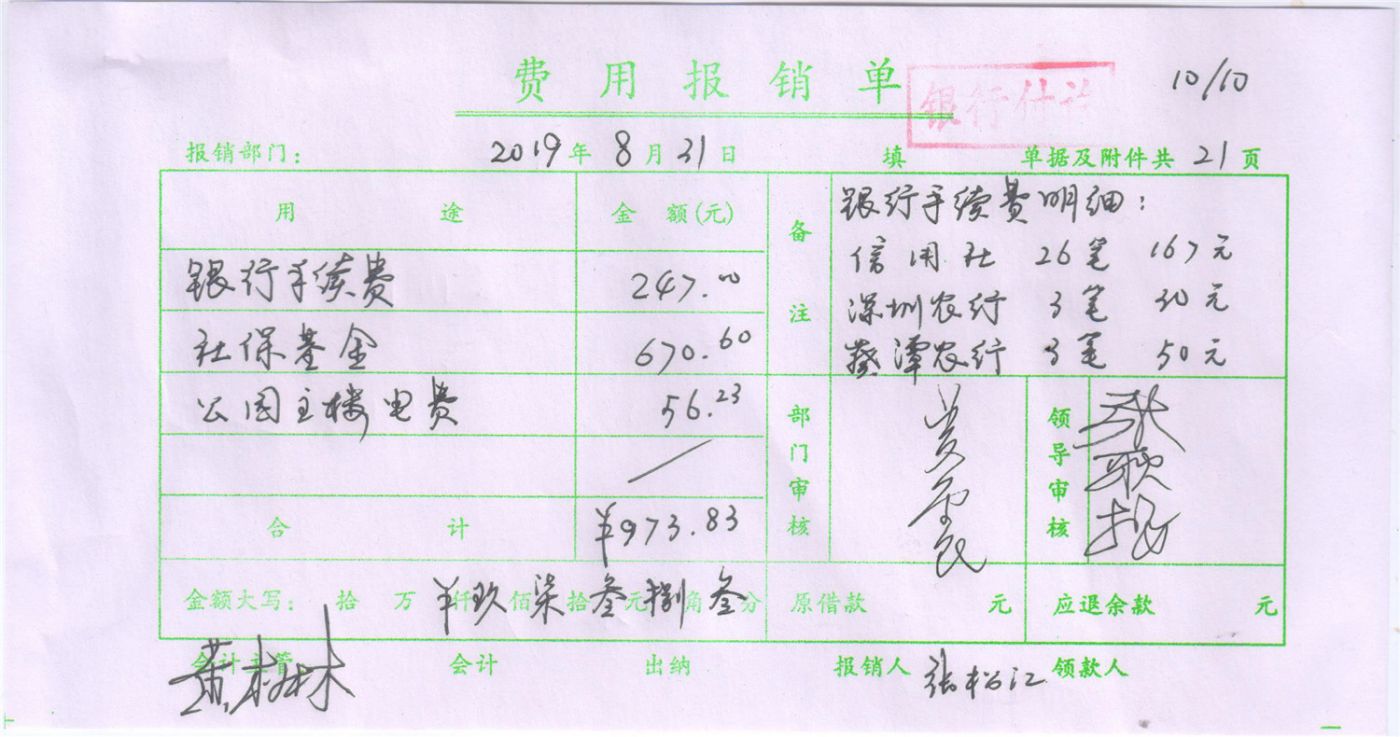 费用报销单
银行付讫
10/10
报销部门： 2019年8月31日 填 单据及附件共21页
用途 金额(元) 备注
银行手续费明细：
信用社 26笔 167元
深圳农行 3笔 30元
葵潭农行 3笔 50元
银行手续费 247.00
社保基金 670.60
公园主楼电费 56.23
合计 ¥973.83
部门审核
领导审核
金额大写： 拾 万 ¥仟玖佰柒拾叁元捌角叁分 原借款 元 应退余款 元
会计主管 黄树林 会计 出纳 报销人 张松江 领款人